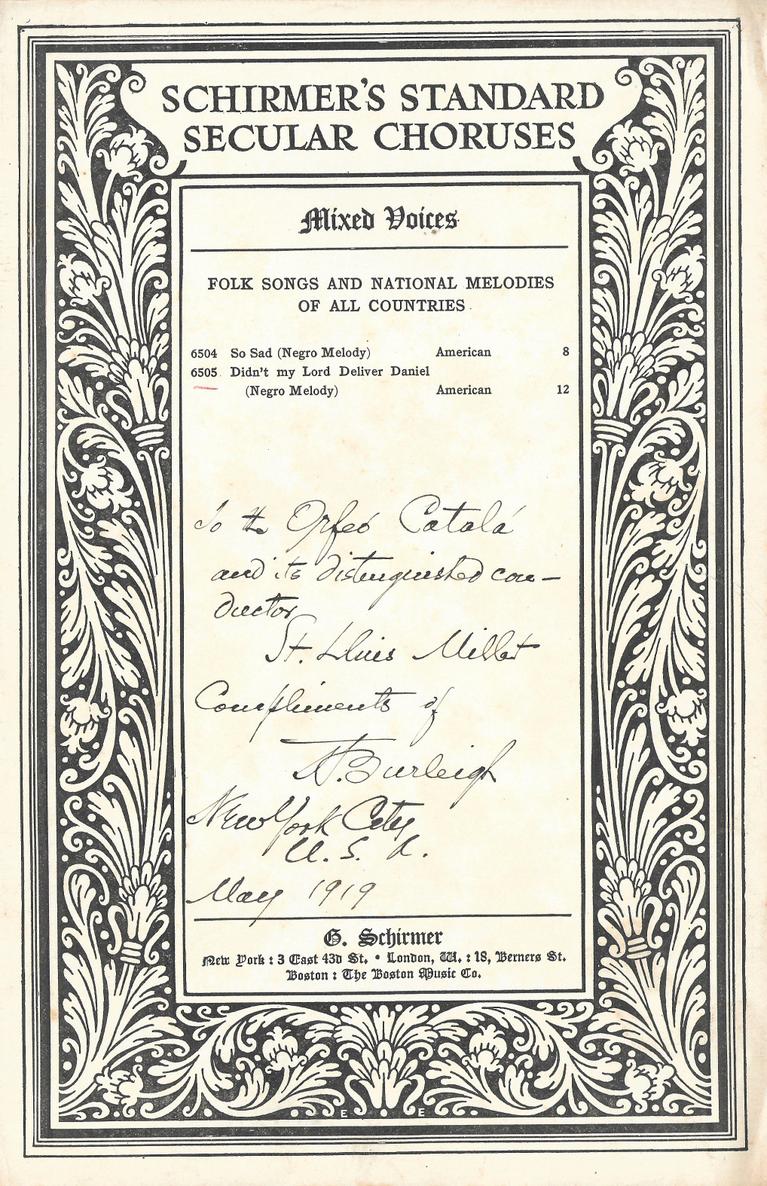 SCHIRMER'S STANDARD
SECULAR CHORUSES
Mixed Voices
FOLK SONGS AND NATIONAL MELODIES
OF ALL COUNTRIES
6504 So Sad (Negro Melody) American 8
6505 Didn't my Lord Deliver Daniel
(Negro Melody) American 12
To the Orfeó Catalá
and its distinguished con-
ductor
Lluis Millet
Compliments of
H. Burleigh
New York City
U. S. A.
May 1919
G. Schirmer
New York : 3 East 43d St. • London, W. : 18, Berners St.
Boston : The Boston Music Co.
E E